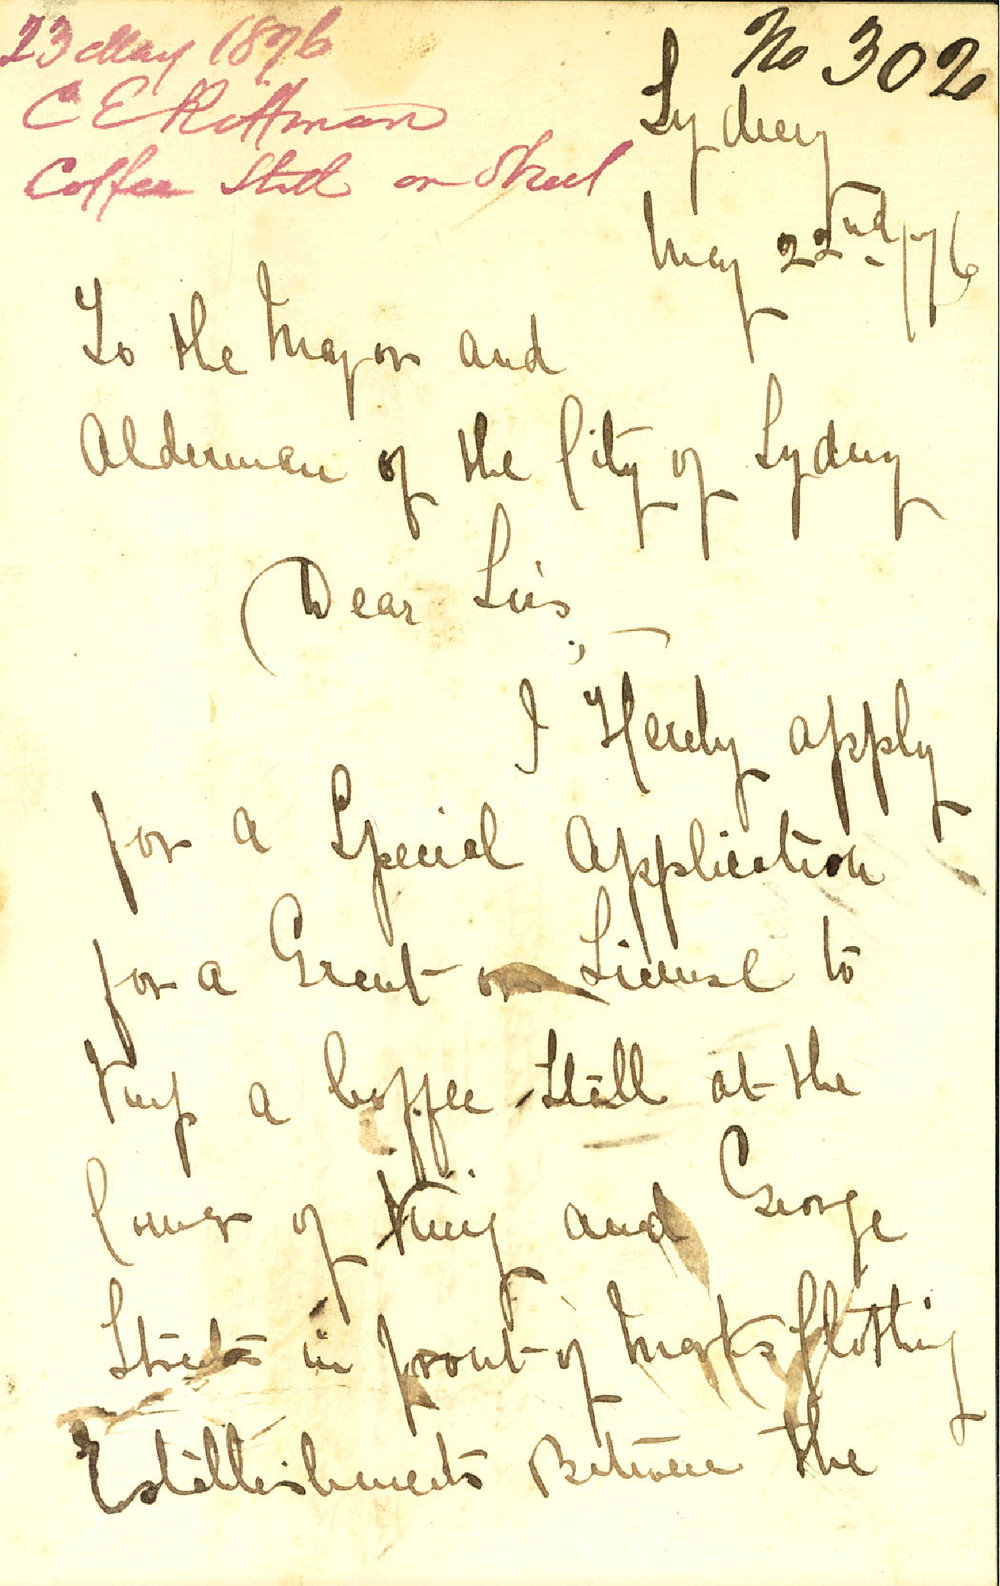 23 May 1876
C E Rittman
Coffee Stall on Street
No 302
Sydney
May 22nd/76
To the Mayor and
Alderman of the City of Sydney
Dear Sirs,
I Hereby apply
for a Special Application
for a Grent or License to
Keep a Coffee Stall at the
Corner of King and George
Streets in front of Marks Clothing
Establishments Between the